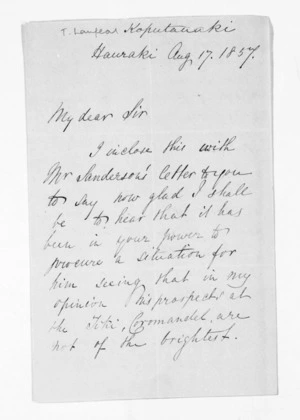 Kaputanaki
Hauraki Aug 17. 1857.
My dear Sir
I inclose this with
Mr Sanderson's letter to you
to say how glad I shall
be to hear that it has
been in your power to
procure a situation for
him seeing that in my
opinion his prospects at
the Tiki, Coromandel, are
not of the brightest.